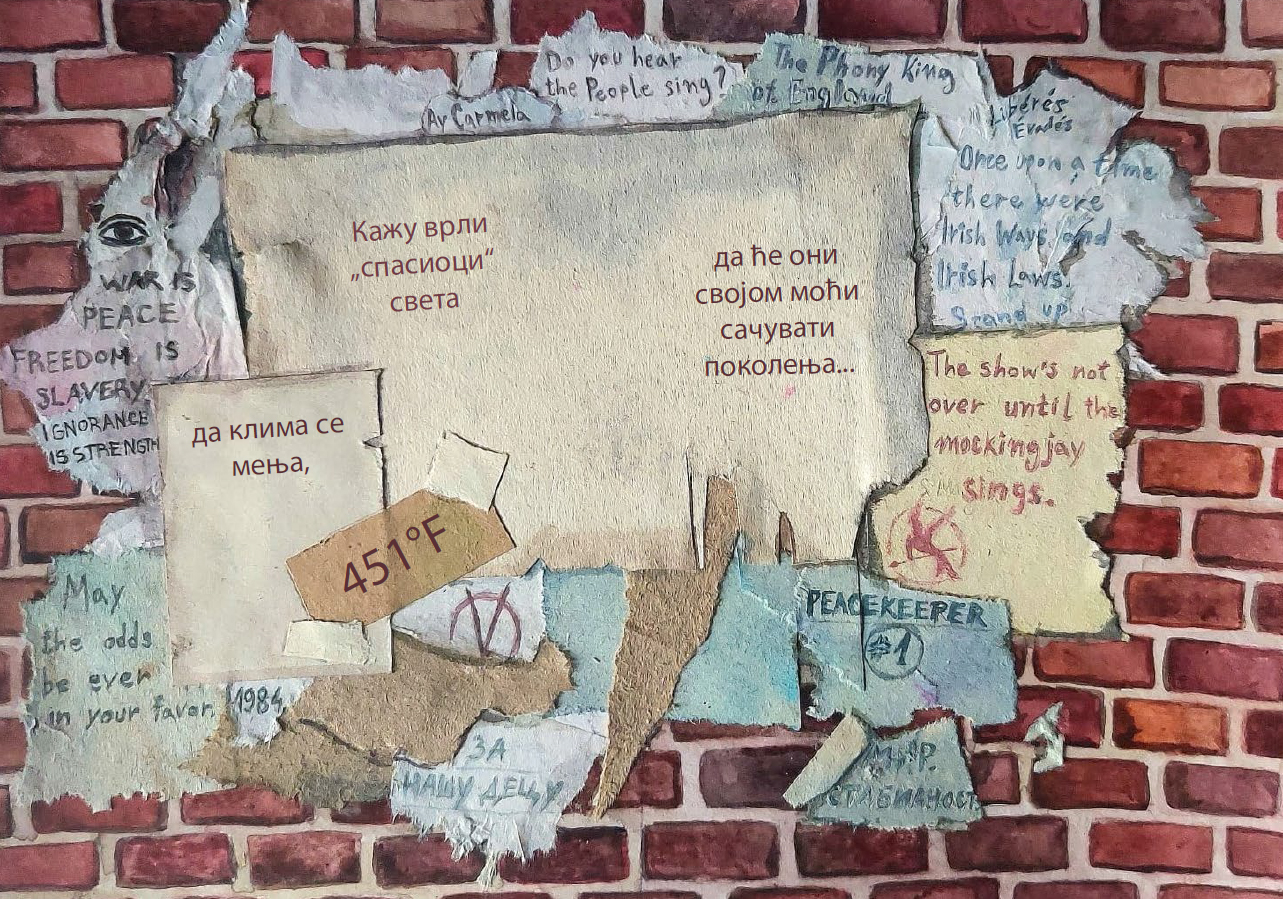 Do you hear
the People sing?
The Phony King
of England
Ay Carmela
Libérés
Évadés
Once upon a time
there were
Irish Ways and
Irish Laws.
Stand up
Кажу врли
„спасиоци“
света
да ће они
својом моћи
сачувати
поколења...
WAR IS
PEACE
FREEDOM IS
SLAVERY
IGNORANCE
IS STRENGTH
да клима се
мења,
The show's not
over until the
mockingjay
sings.
451°F
V
May
the odds
be ever
in your favor.
1984
PEACEKEEPER
#1
ЗА
НАШУ ДЕЦУ
МИР.
СТАБИЛНОСТ